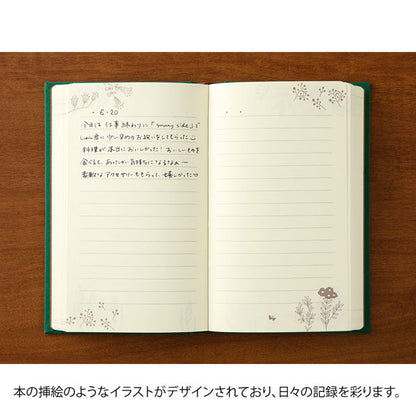 ・ 5・20
今日は 仕事 終わりに「sunny side」で
しゅん君に 少し早めのお祝いをしてもらった
料理が本当においしかった! おいしいものを
食べると、あったかい気持ちになるなぁー
素敵なアクセサリーももらって、嬉しかった♡
本の挿絵のようなイラストがデザインされており、日々の記録を彩ります。